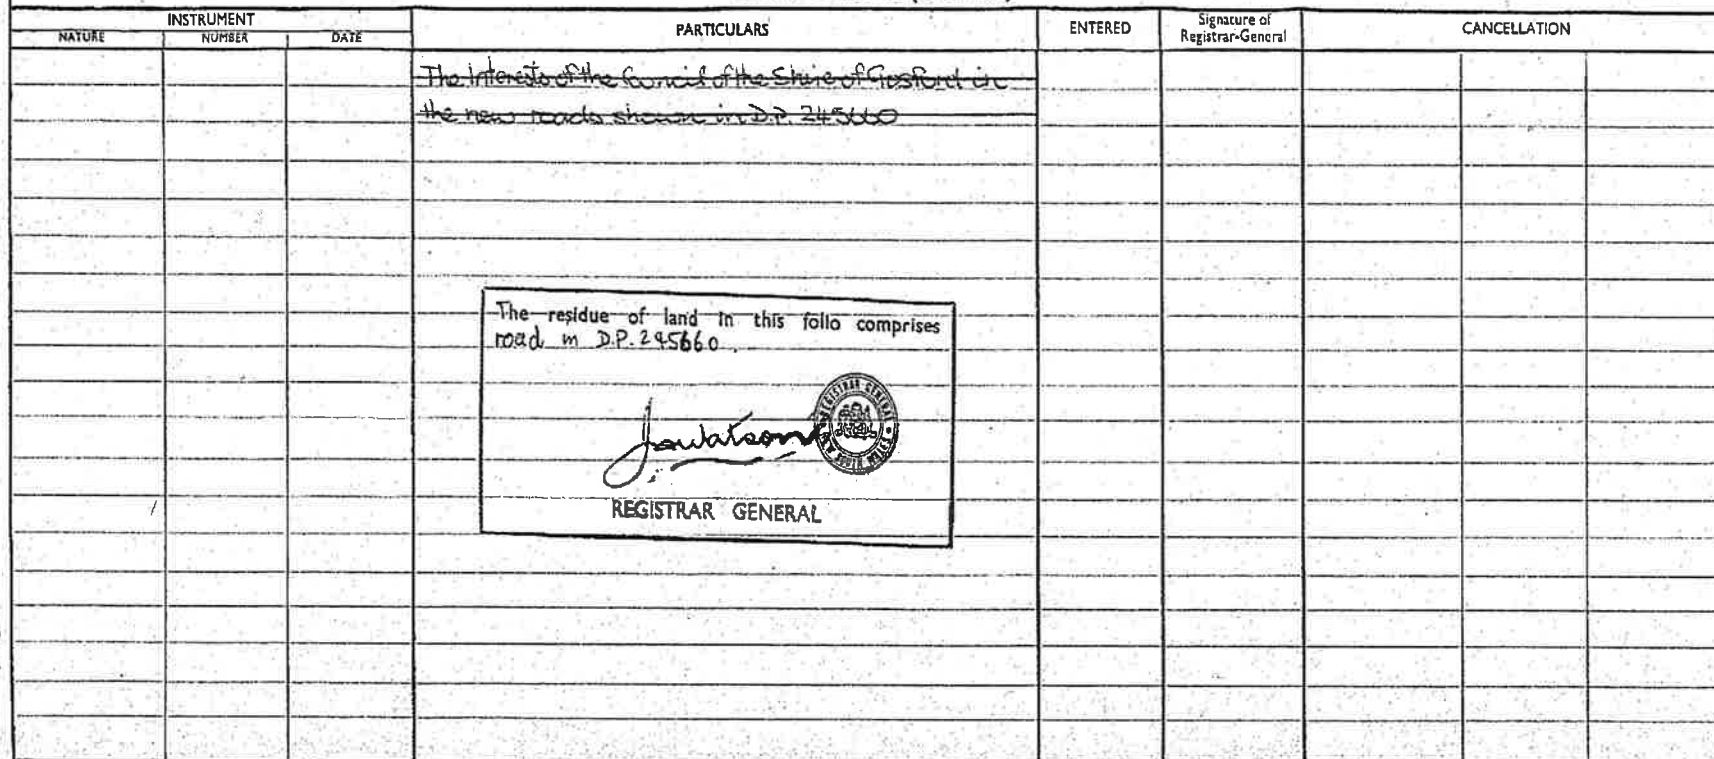 INSTRUMENT
NATURE NUMBER DATE
PARTICULARS
ENTERED
Signature of
Registrar-General
CANCELLATION
The interests of the Council of the Shire of Gosford in
the new roads shown in D.P. 245660
The residue of land in this folio comprises
road in D.P. 245660.
Jowatson
REGISTRAR GENERAL
NEW SOUTH WALES
REGISTRAR GENERAL